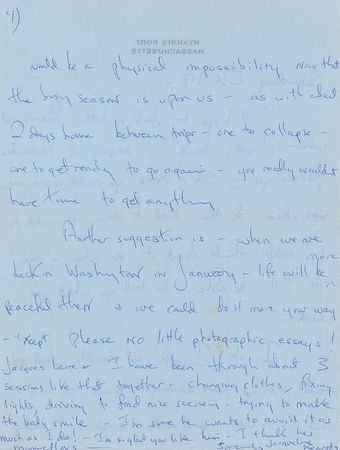 4)
HYANNIS PORT
MASSACHUSETTS
would be a physical impossibility now that
the busy season is upon us - as with about
2 days home between trips - one to collapse -
one to get ready to go again - you really wouldn't
have time to get anything
Another suggestion is - when we are
back in Washington in January - life will be more
peaceful then & we could do it more your way
- xept please no little photographic essays!
Jacques Lowe & I have been through about 3
sessions like that together - changing clothes, fixing
lights driving to find nice scenery - trying to make
the baby smile - I'm sure he wants to avoid it as
much as I do! - I'm so glad you like him - I think he's
marvellous - Sincerely Jacqueline Kennedy